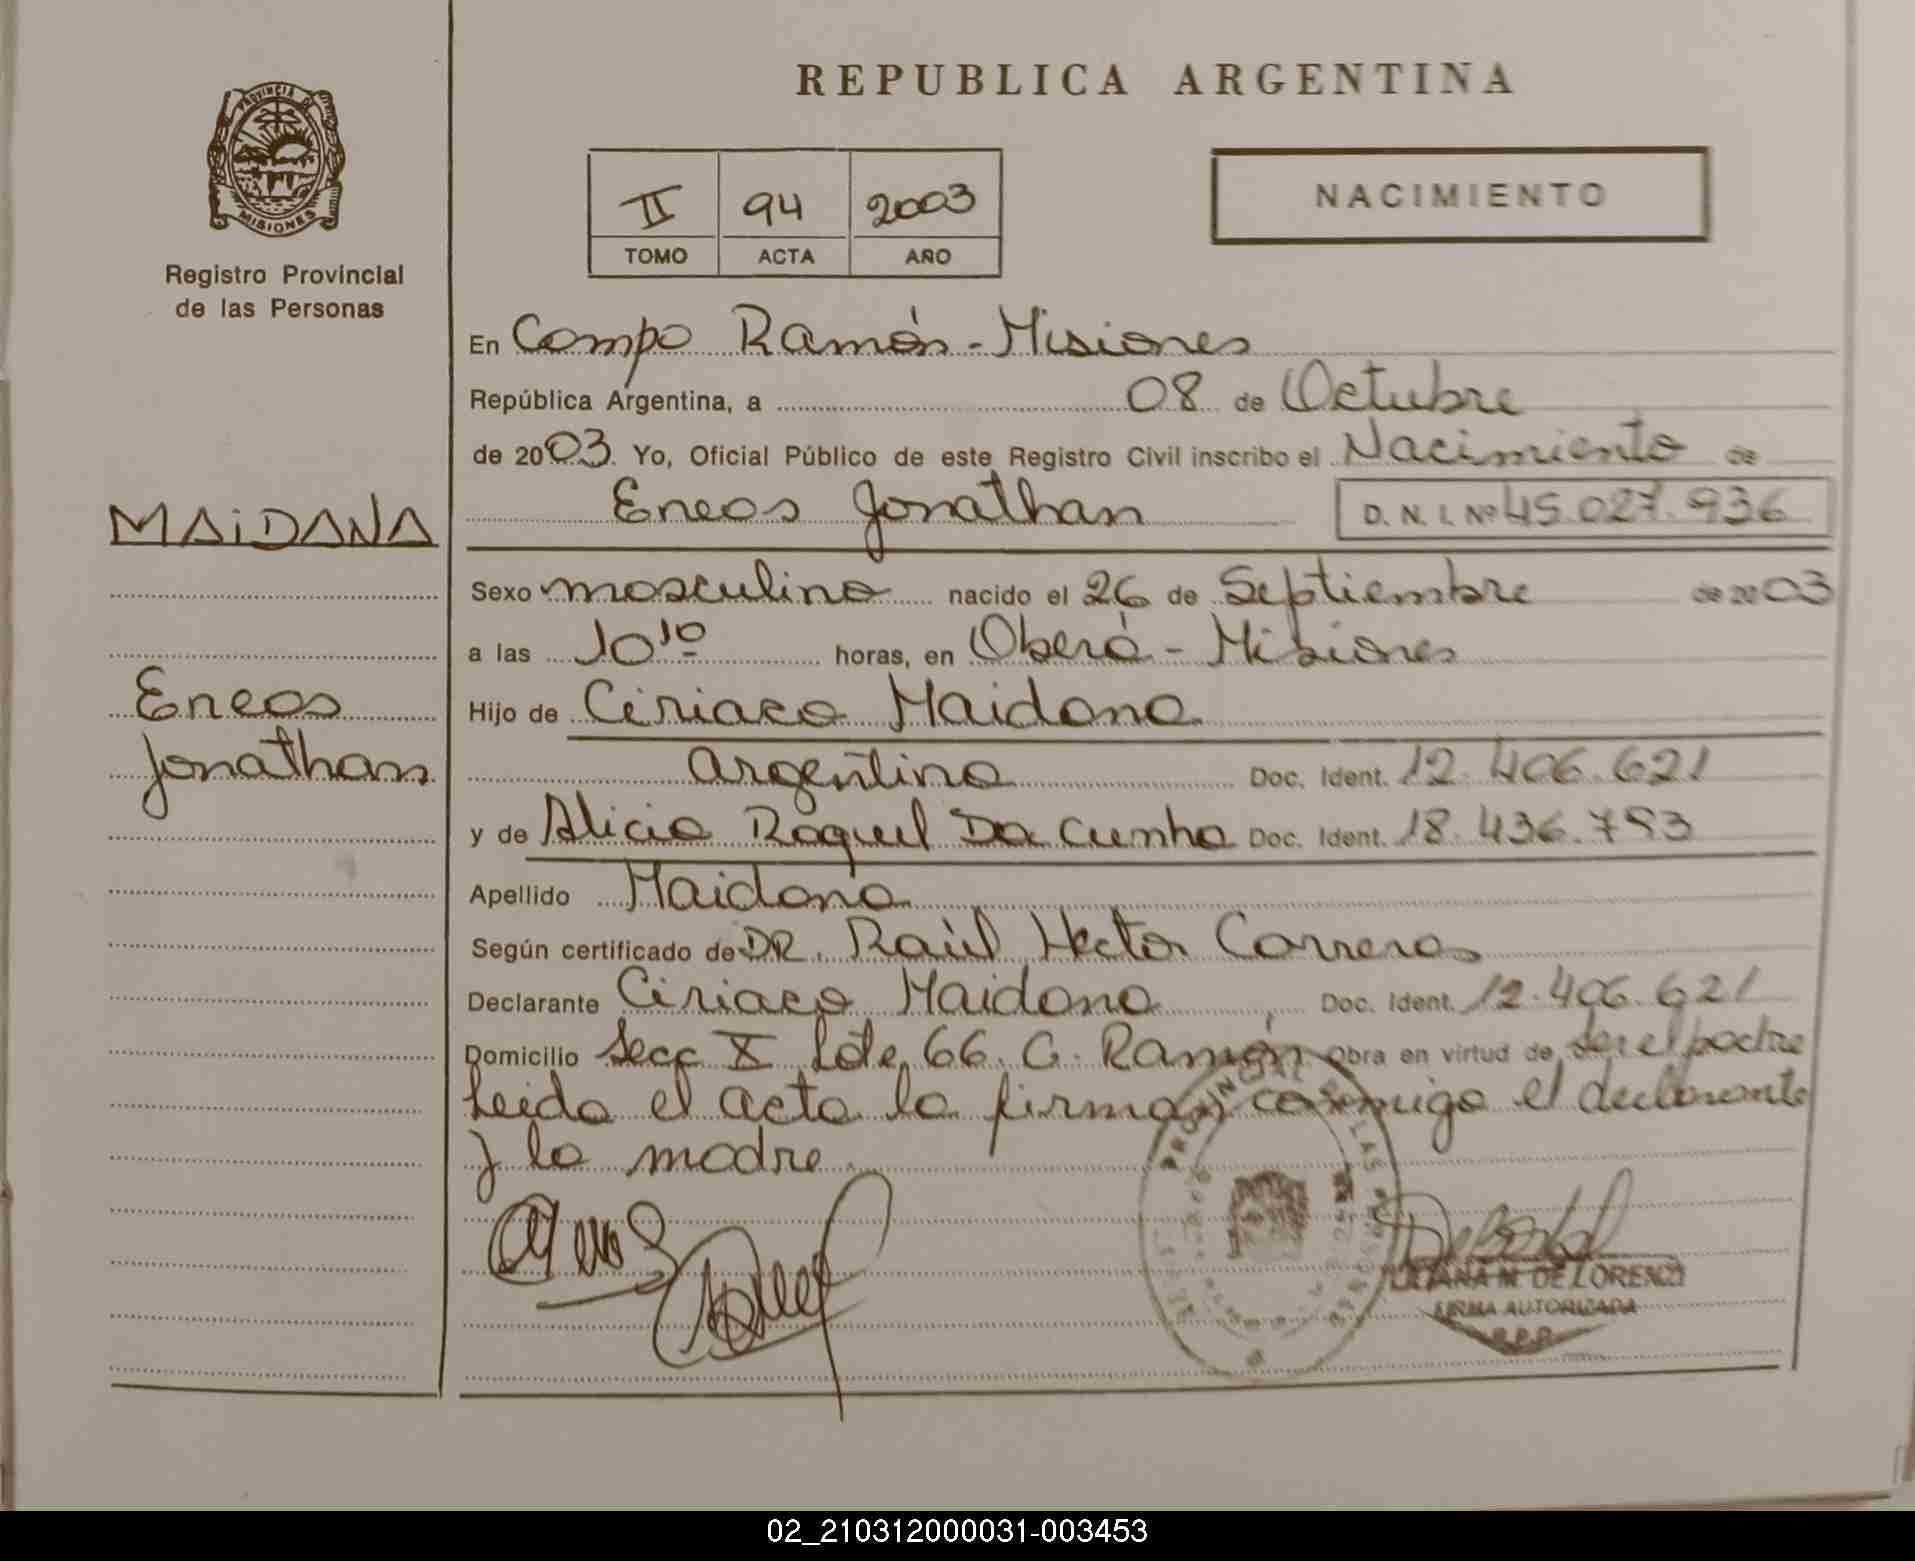 REPUBLICA ARGENTINA
PROVINCIA DE
MISIONES
Registro Provincial
de las Personas
II 94 2003
TOMO ACTA AÑO
NACIMIENTO
En Campo Ramón - Misiones
República Argentina, a 08 de Octubre
de 2003 Yo, Oficial Público de este Registro Civil inscribo el Nacimiento de
Eneas Jonathan D. N. I. Nº 45.027.936
MAiDANA
Sexo masculino nacido el 26 de Septiembre de 2003
a las 10¹⁰ horas, en Oberá - Misiones
Eneas
Jonathan
Hijo de Ciriaco Maidana
argentino Doc. Ident. 12.406.621
y de Alicia Raquel Da Cunha Doc. Ident. 18.436.793
Apellido Maidana
Según certificado de DR. Raúl Hector Carreras
Declarante Ciriaco Maidana Doc. Ident. 12.406.621
Domicilio Secc X Lote 66. C. Ramón Obra en virtud de ser el padre
Leida el acta la firman conmigo el declarante
y la madre
PROVINCIAL DE LAS PERSONAS
DE LORENZI
FIRMA AUTORIZADA
R.P.P.
02_210312000031-003453